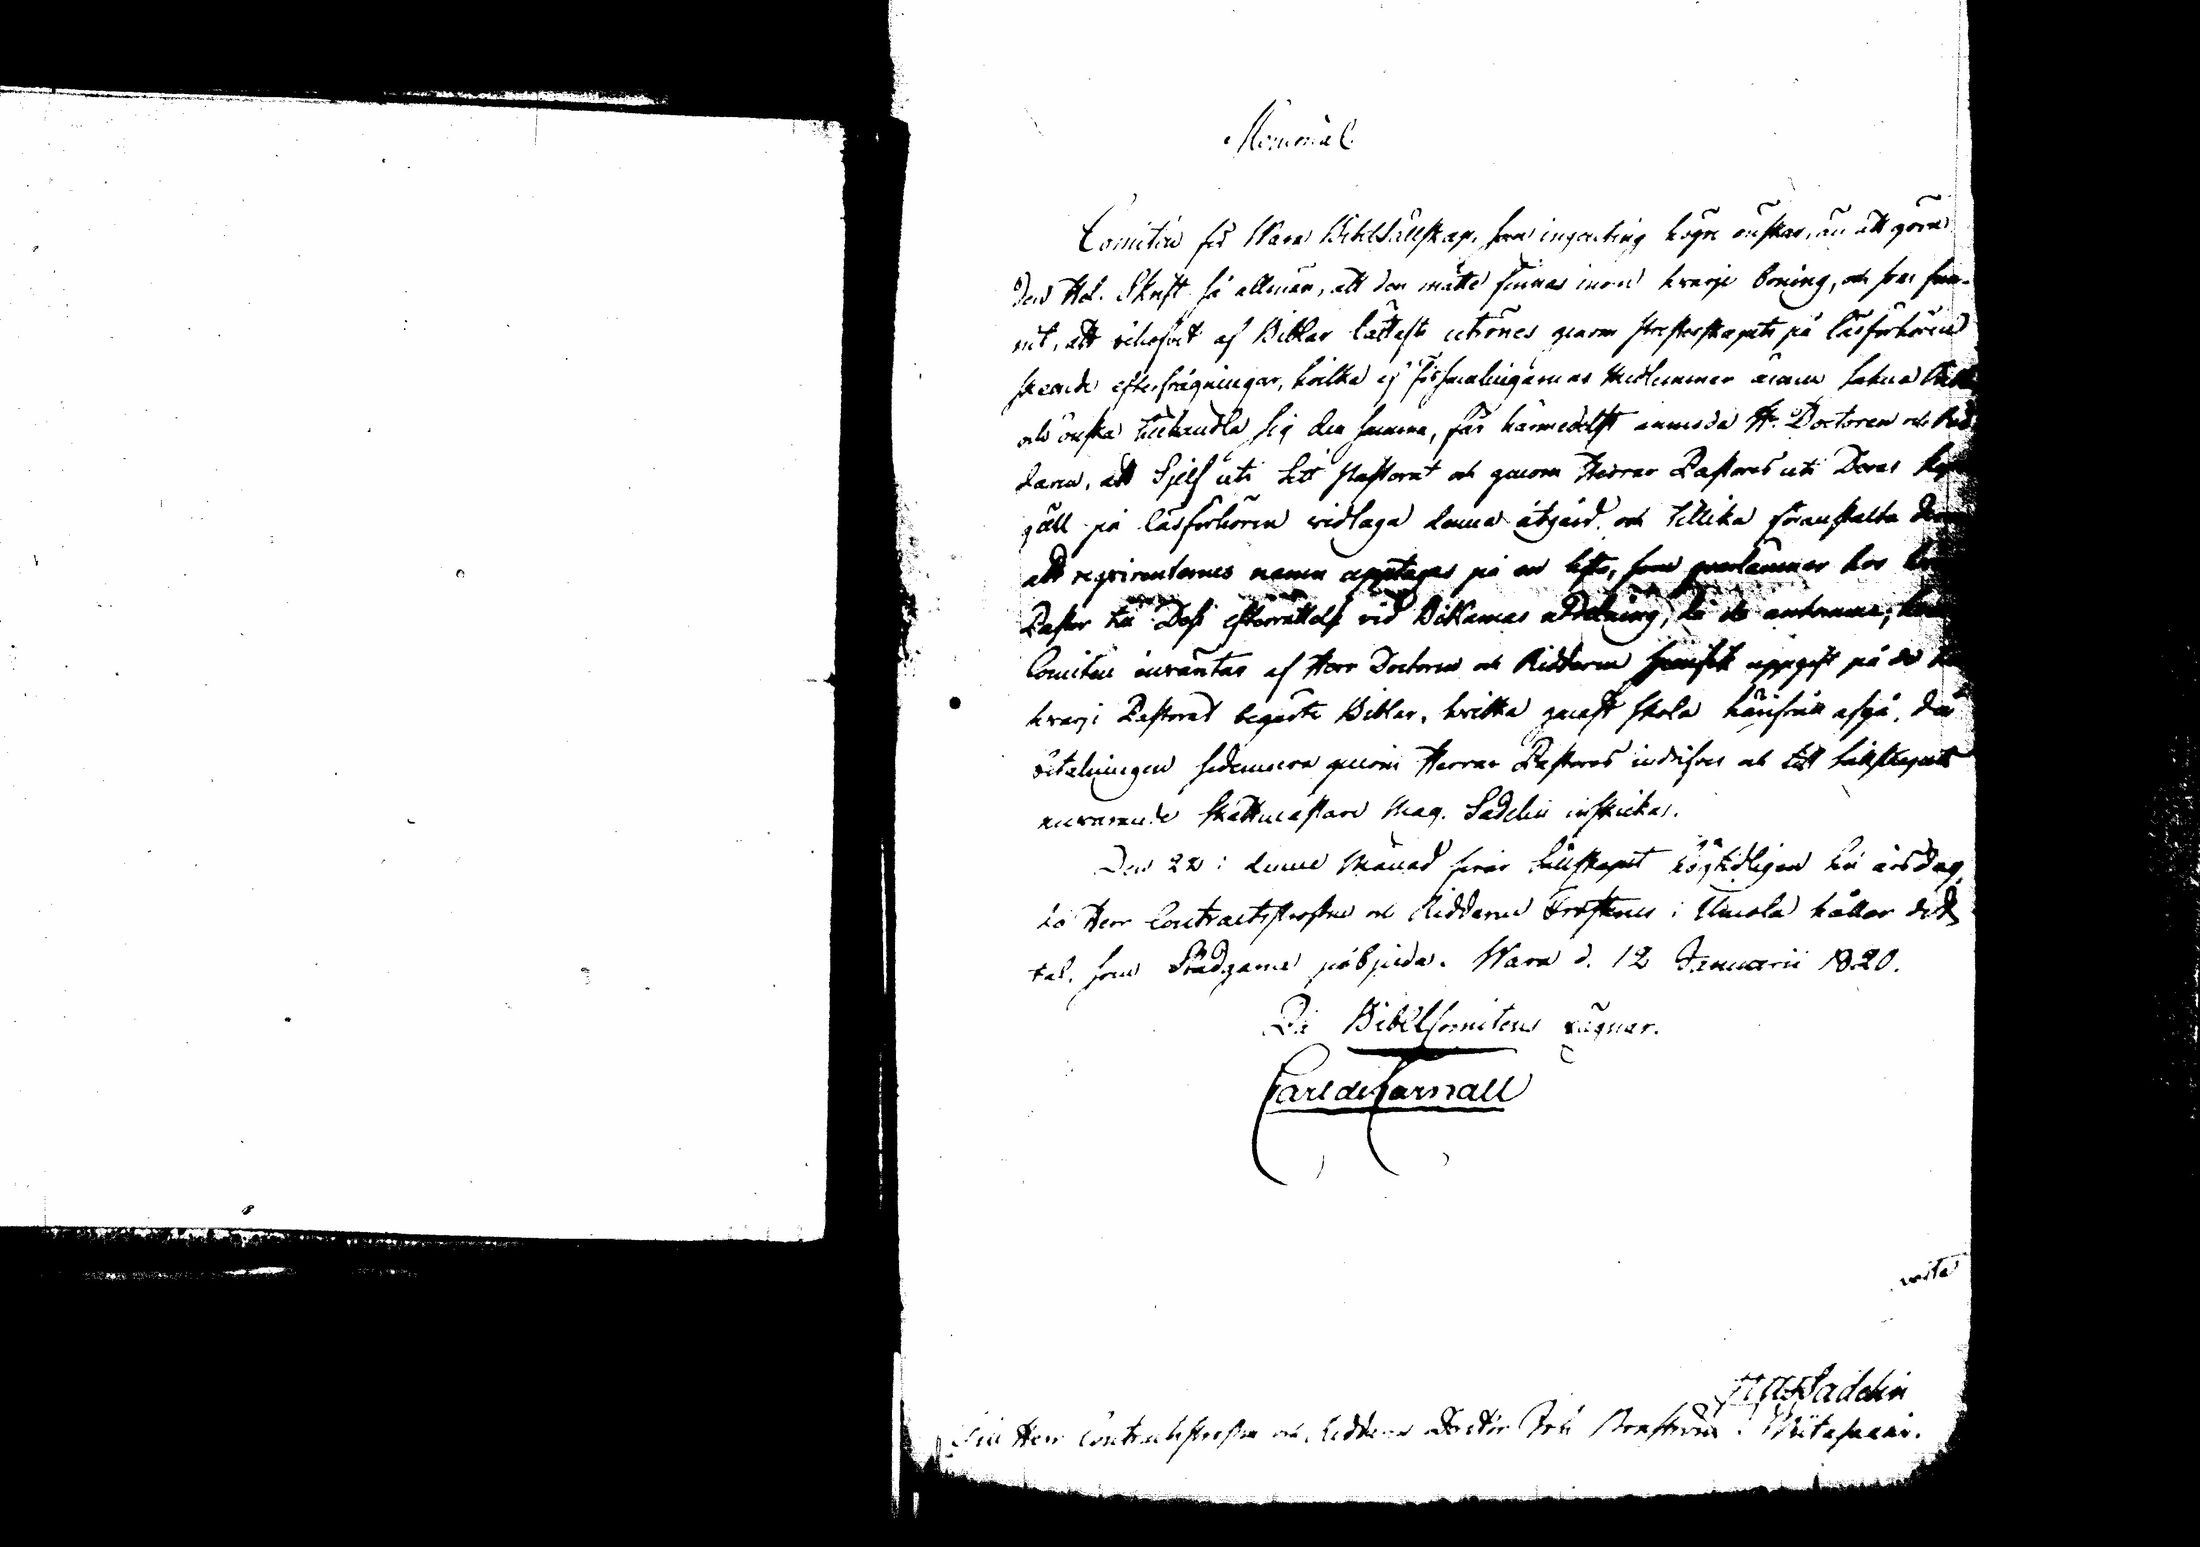 Memorial
Comitén för Wasa BibelSällskap, som ingenting högre önskar, än att göra
den Hel. Skrift så allmän, att den måtte finnas inom hvarje boning, och har fun-
nit, att behofvet af Biblar lättast utrönes genom Presterskapets på läsförhören
skeende efterfrågningar, hvilka af församlingarnas Medlemmar ännu sakna Bibel
och önska tillhandla sig den samma, får härmedelst anmoda Hr. Doctoren och Rid-
daren, att Sjelf uti Sitt Pastorat och genom Herrar Pastores uti Deras
gäll på läsförhören vidtaga denna åtgärd, och tillika föranstalta
att reqvirenternes namn upptagas på en lista, som qvarlämnar hos
Pastor till Dess efterrättelse vid Biblarnas utdelning, då de ankomma,
Comitén inväntar af Herr Doctoren och Ridderen uppgift på de
hvarje Pastorat begärte Biblar, hvilka genast skola härifrån afgå, då
betalningen sedermera genom Herrar Pastores indrifves och till Sällskapets
nuvarande Skattmästare Mag. Sadelin inskickas.
Den 22 i denne Månad firar Sällskapet högtidligen sin årsdag,
då Herr Contractsprosten och Riddaren i Umola håller det
tal, som Stadgarne påbjuda. Wasa d. 12 Januarii 1820.
På BibelComitens vägnar.
Carl de Carnall
verte
Sadelin
Till Herr Contractsprosten och Riddaren Doctor Joh. i Wiitasaari.